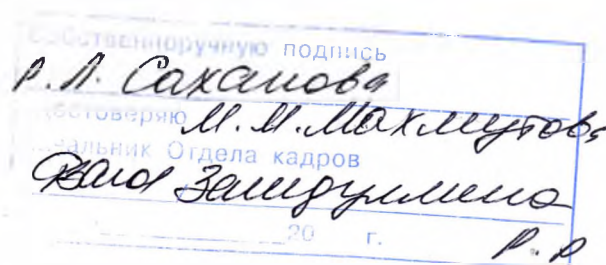 Собственноручную подпись
Р. Л. Саханова
удостоверяю М. М. Махмутова
Начальник Отдела кадров
20 г.